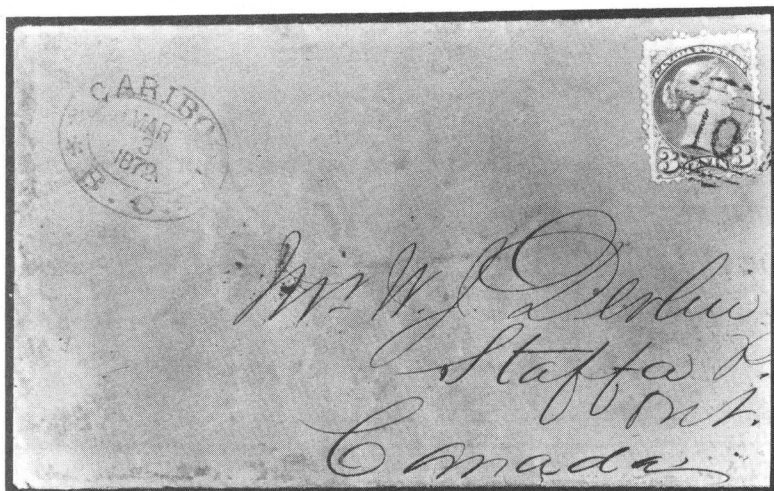 CARIBO
MAR
3
1872
B. C.
CANADA POSTAGE
10
3 CENTS 3
Mr. W. J. Devlin
Staffa P.
Ont.
Canada